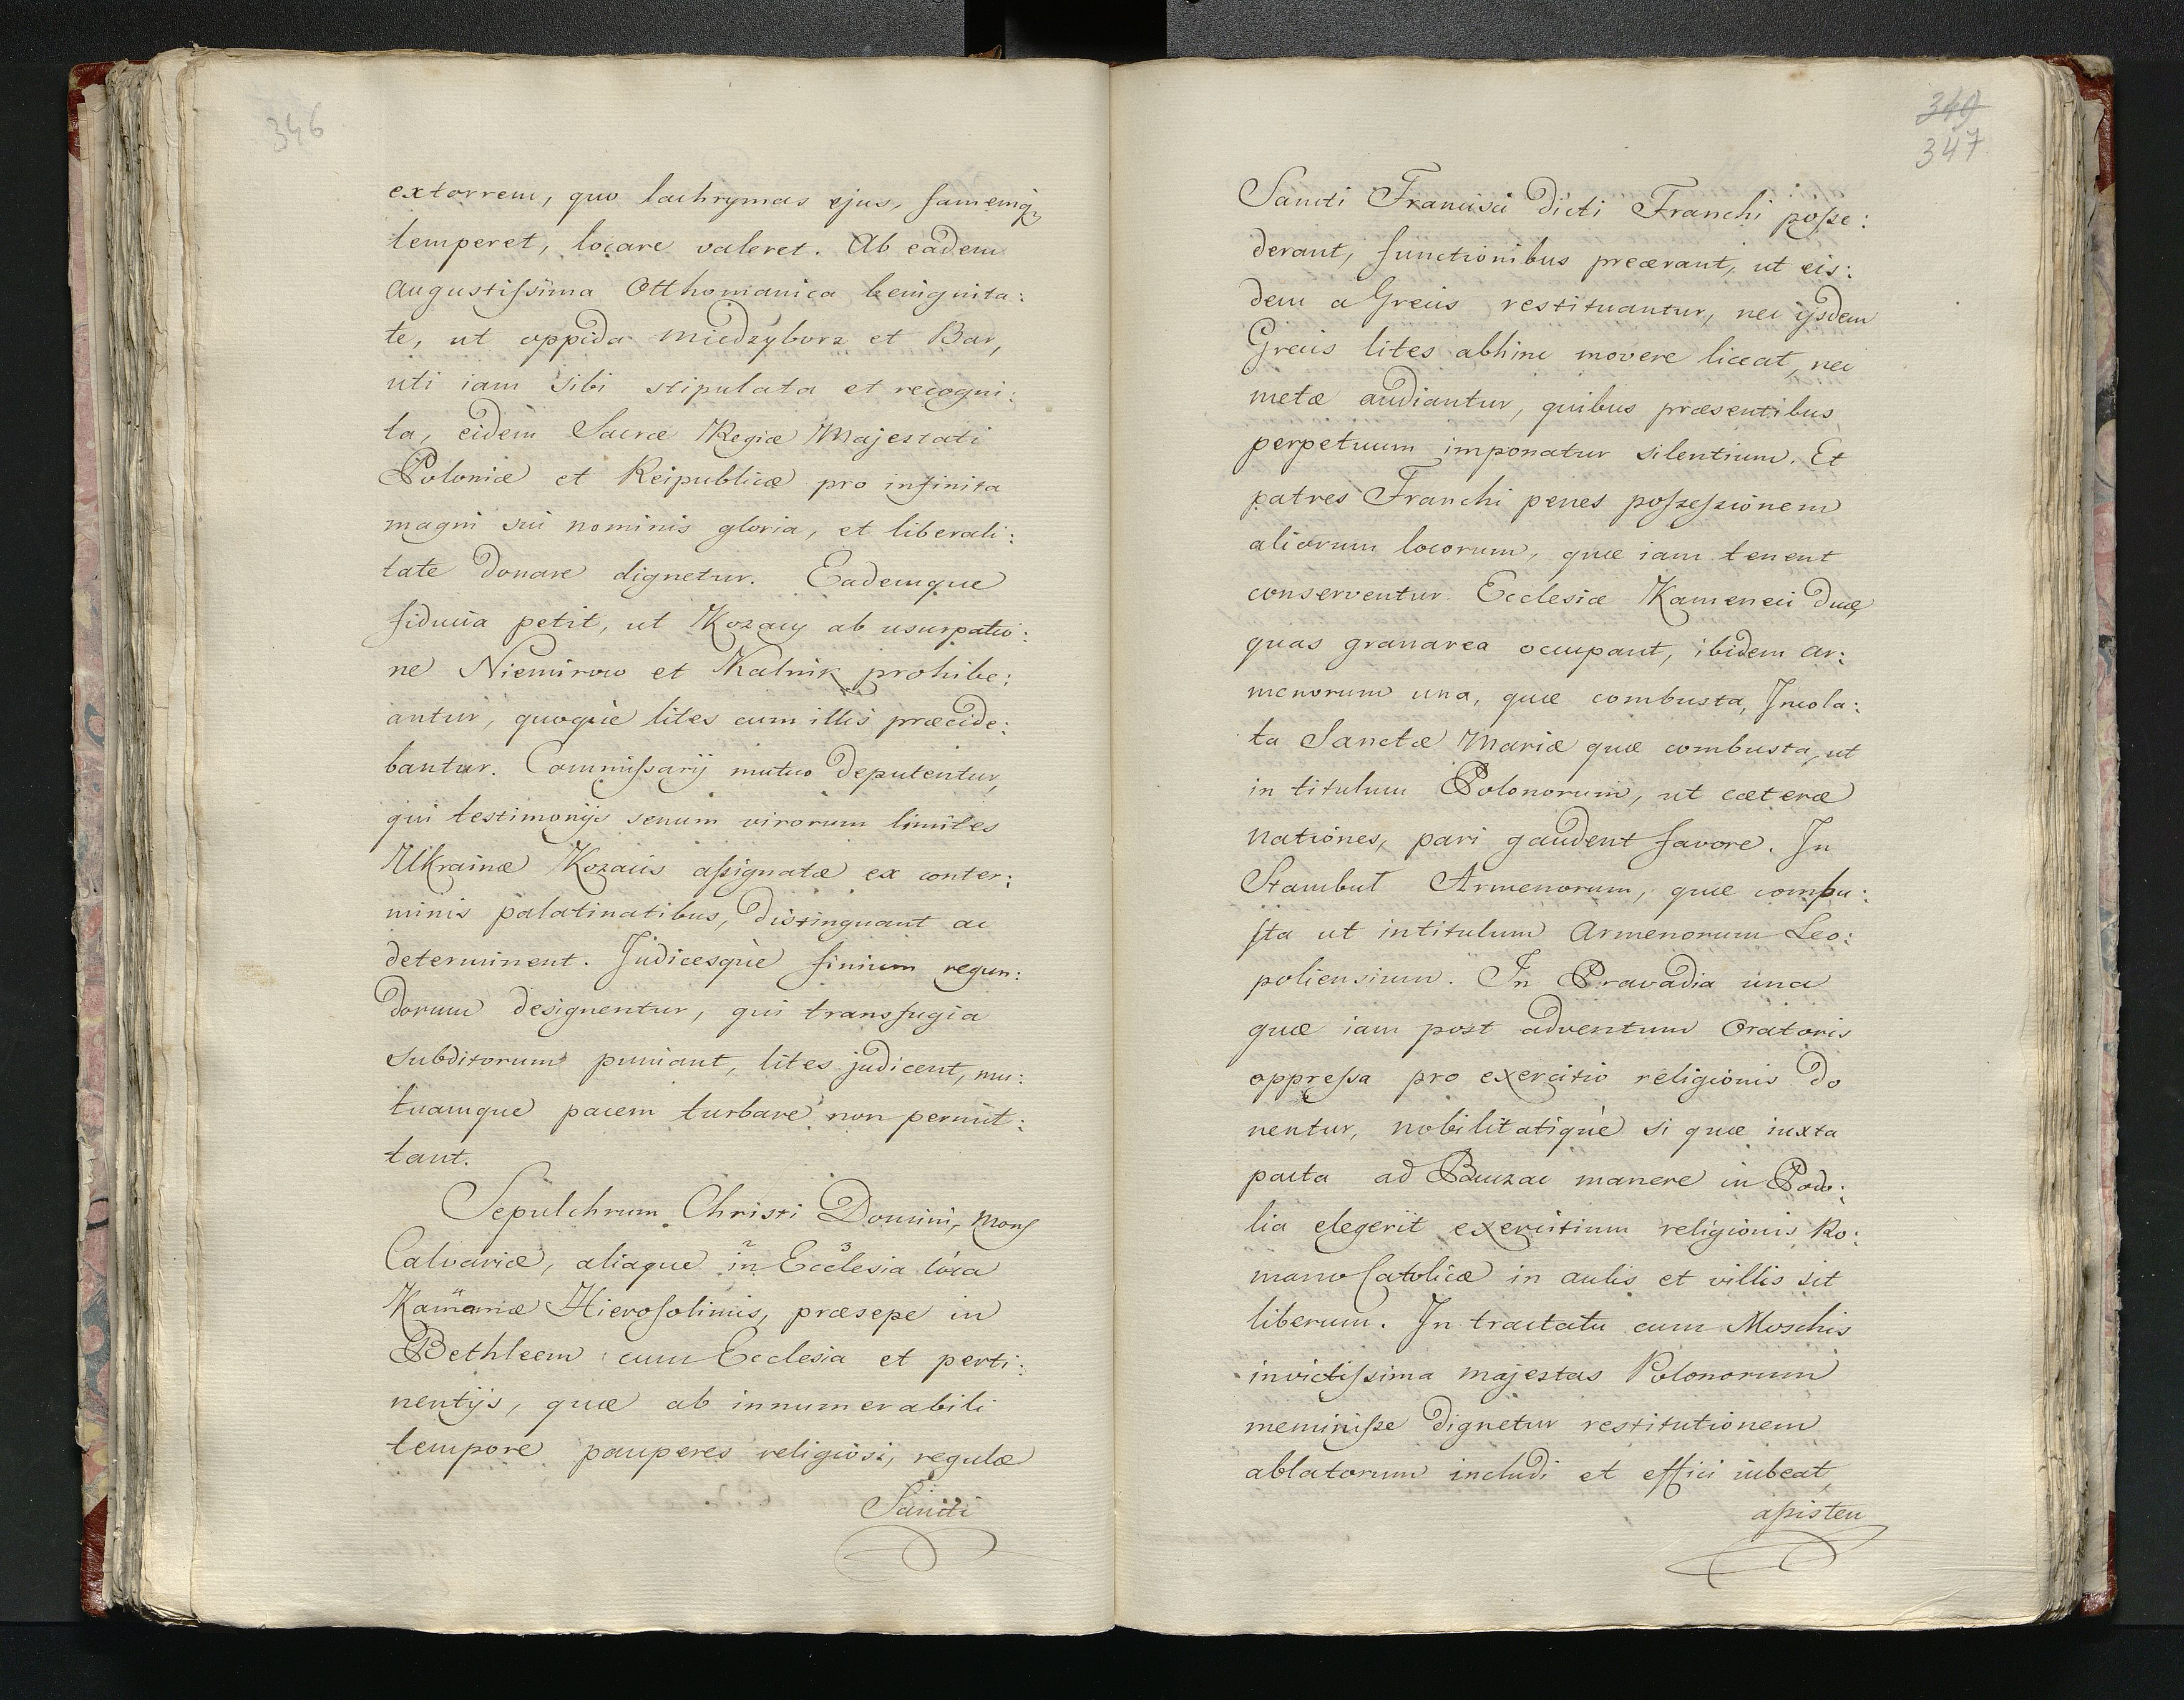 346
extorrem, quo lachrymas ejus, famemq3
temperet, locare valeret. Ab eadem
Augustiſsima Otthomanica benignita:
te, ut oppida Miedzyborz et Bar,
uti iam sibi stipulata et recogni:
ta, eidem Sacræ Regiæ Majestati
Poloniæ et Reipublicæ pro infinita
magni sui nominis gloria, et liberali:
tate donare dignetur. Eademque
fiducia petit, ut Kozacy ab usurpatio:
ne Niemirow et Kalnik prohibe:
antur, quoquè lites cum illis præcide:
bantur. Commiſsarij mutuo deputentur,
qui testimonijs senum virorum limites
Ukrainæ Kozacis aſsignatæ ex conter:
minis palatinatibus, distinguant ac
determinent. Judicesquè finium regun:
dorum designentur, qui transfugia
subditorum puniant, lites judicent, mu:
tuamque pacem turbare non permit:
tant.
Sepulchrum Christi Domini, Mons
Calvariæ, aliaque in Ecclesia loca
Kamamæ Hierosolimis, præsepe in
Bethleem cum Ecclesia et perti:
nentijs, quæ ab innumerabili
tempore pauperes religiosi, regulæ
Sancti
349
347
Sancti Francisci dicti Franchi poſse:
derant, functionibus præerant, ut eis:
dem a Grecis restituantur, nec ijsdem
Grecis lites abhinc movere liceat, nec
metæ audiantur, quibus præsentibus
perpetuum imponatur silentium. Et
patres Franchi penes poſseſsionem
aliorum locorum, quæ iam tenent
conserventur. Ecclesiæ Kameneci duæ
quas granarea occupant, ibidem Ar:
menorum una, quæ combusta, Incola:
ta Sanctæ Mariæ quæ combusta, ut
in titulum Polonorum, ut cæteræ
nationes, pari gaudent favore. In
Stambuł Armenorum, quæ combu:
sta ut intitulum Armenorum Leo:
poliensium. In Pravadia una
quæ iam post adventum Oratoris
oppreſsa pro exercitio religionis do
nentur, nobilitatiquè si quæ iuxta
pacta ad Buczac manere in Podo:
lia elegerit exercitium religionis Ro:
mano Catolicæ in aulis et villis sit
liberum. In tractatu cum Moschis
invictiſsima majestas Polonorum
meminiſse dignetur restitutionem
ablatorum includi et effici iubeat,
aſsisten